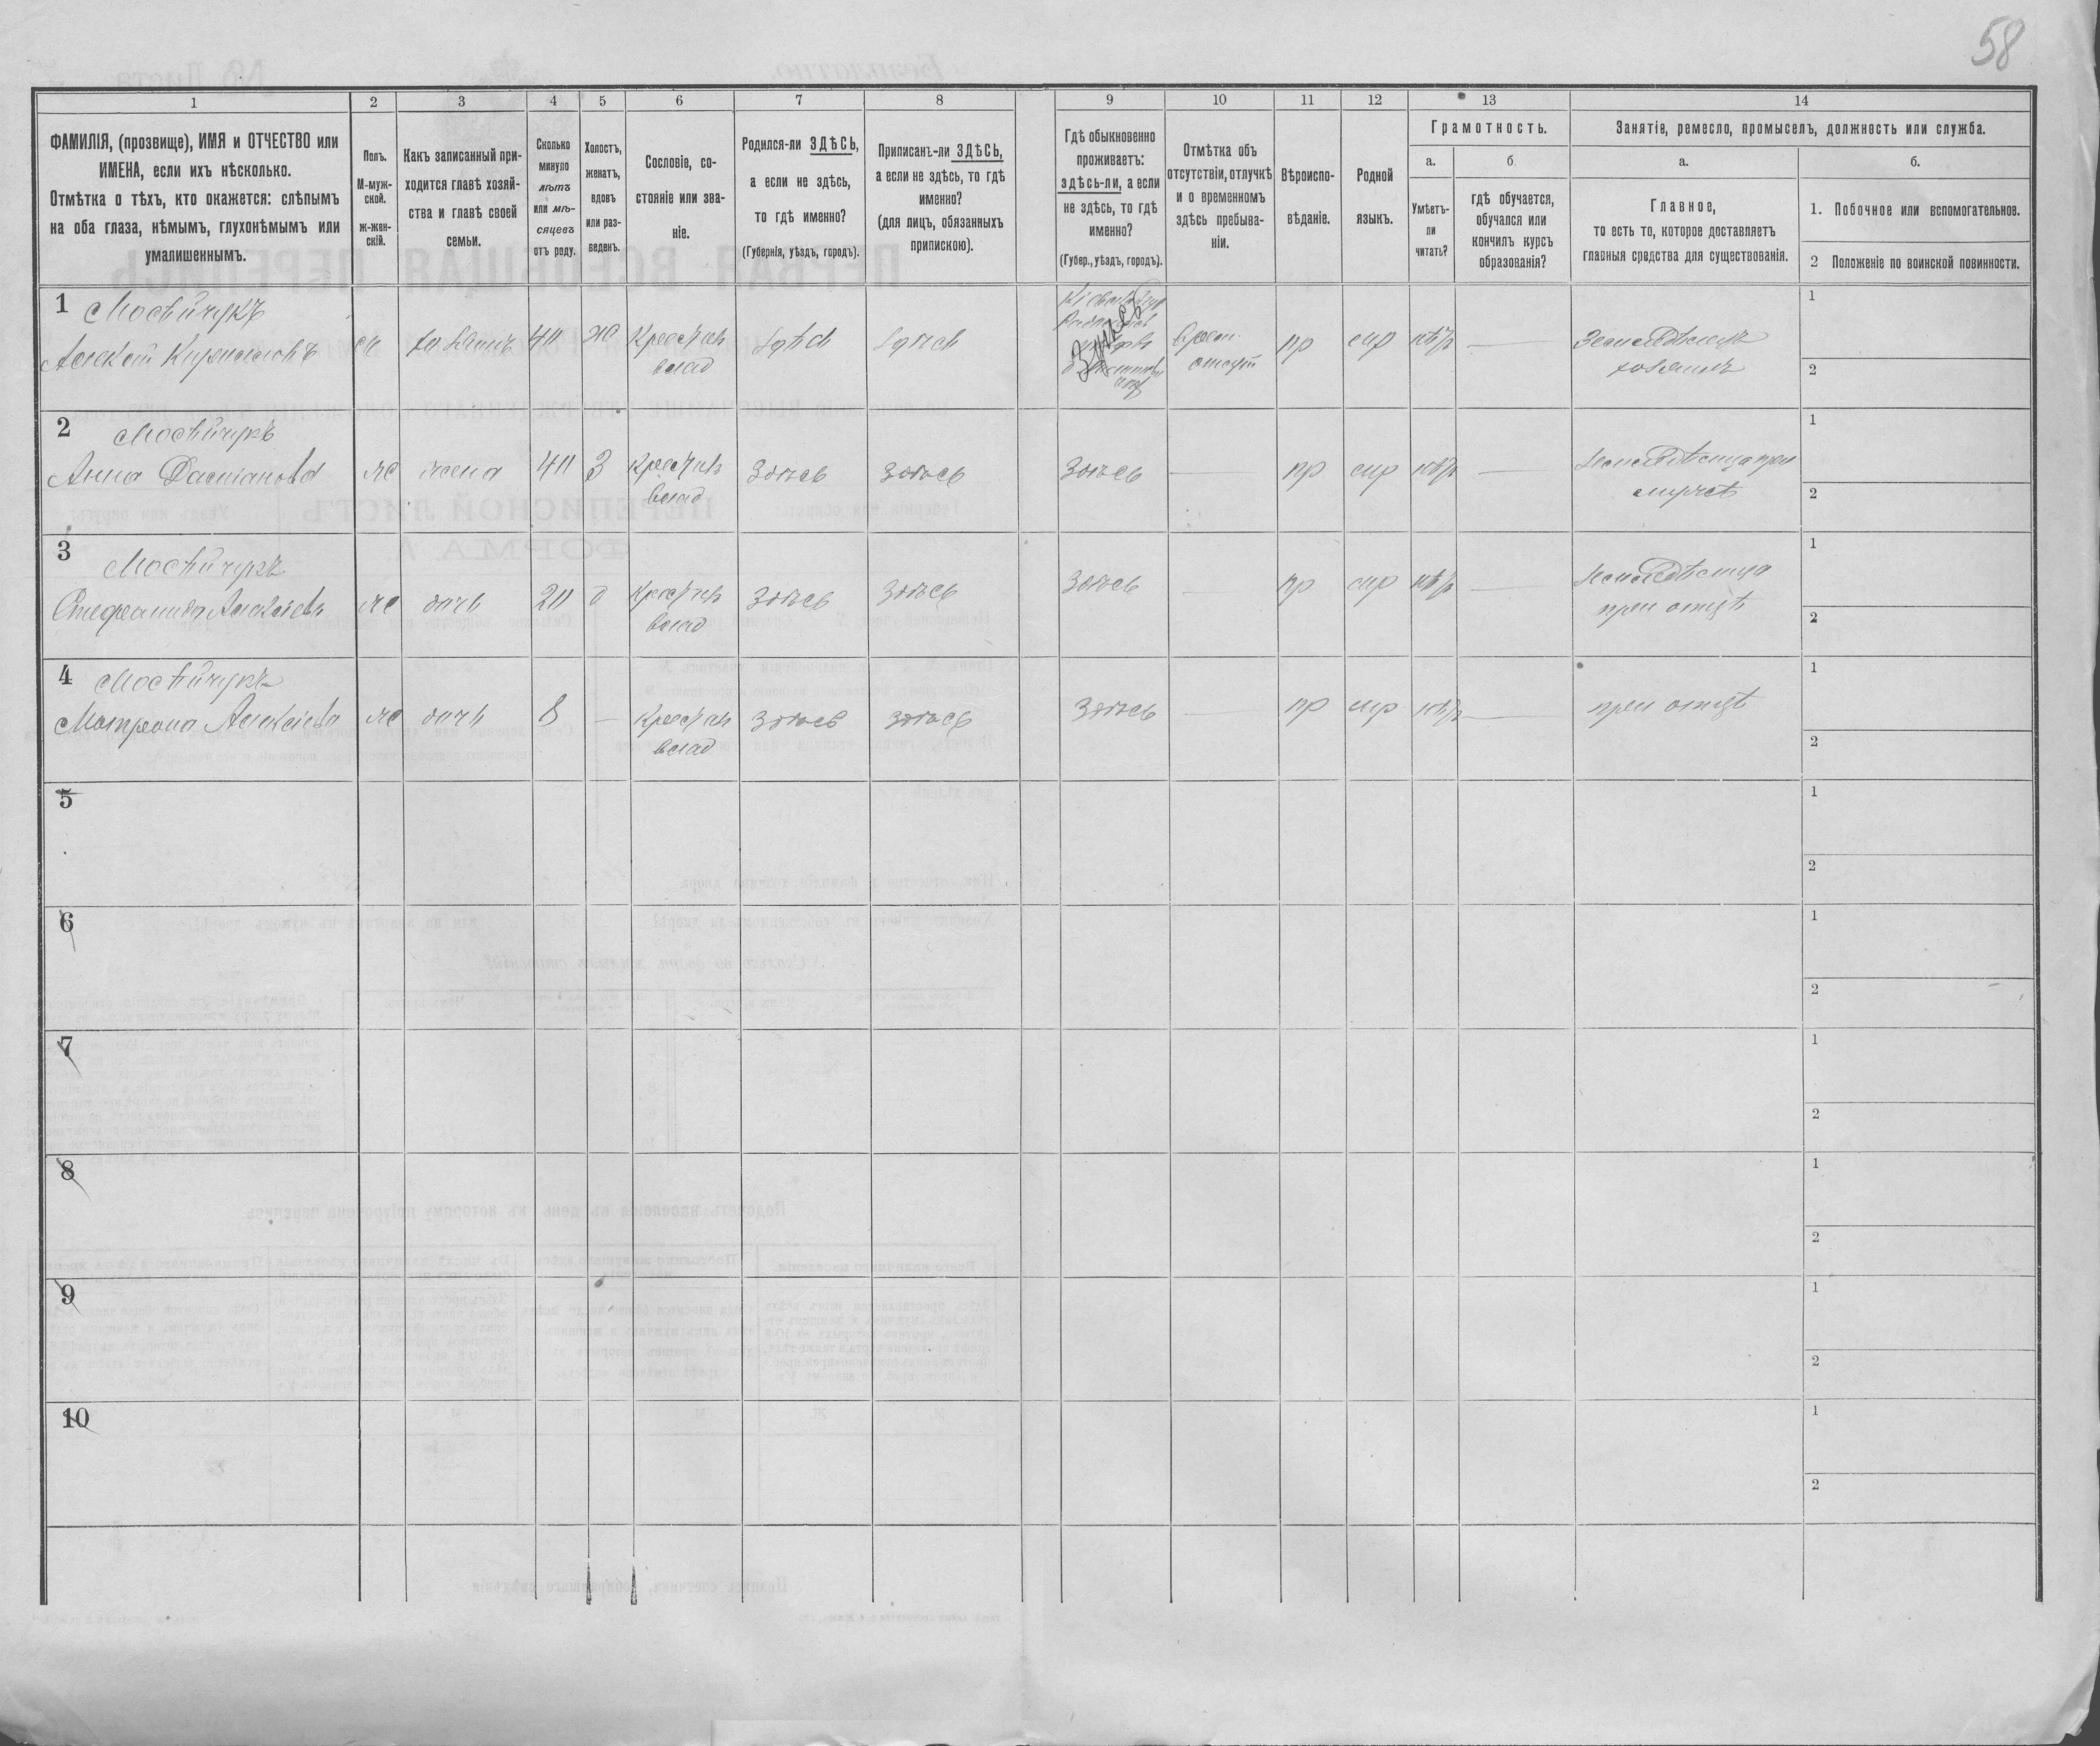 58
1
2
3
4
5
6
7
8
9
10
11
12
13
14
ФАМИЛІЯ, (прозвище), ИМЯ и ОТЧЕСТВО или
ИМЕНА, если ихъ нѣсколько.
Отмѣтка о тѣхъ, кто окажется: слѣпымъ
на оба глаза, нѣмымъ, глухонѣмымъ или
умалишеннымъ.
Полъ.
М-муж-
ской.
Ж-жен-
скій.
Какъ записанный при-
ходится главѣ хозяй-
ства и главѣ своей
семьи.
Сколько
минуло
лѣтъ
или мѣ-
сяцевъ
отъ роду.
Холостъ,
женатъ,
вдовъ
или раз-
веденъ.
Сословіе, со-
стояніе или зва-
ніе.
Родился-ли ЗДѢСЬ,
а если не здѣсь,
то гдѣ именно?
(Губернія, уѣздъ, городъ).
Приписанъ-ли ЗДѢСЬ,
а если не здѣсь, то гдѣ
именно?
(для лицъ, обязанныхъ
припискою).
Гдѣ обыкновенно
проживаетъ:
здѣсь-ли, а если
не здѣсь, то гдѣ
именно?
(Губер., уѣздъ, городъ).
Отмѣтка объ
отсутствіи, отлучкѣ
и о временномъ
здѣсь пребыва-
ніи.
Вѣроиспо-
вѣданіе.
Родной
языкъ.
Грамотность.
а.
Умѣетъ-
ли
читать?
б.
гдѣ обучается,
обучался или
кончилъ курсъ
образованія?
Занятіе, ремесло, промыселъ, должность или служба.
а.
Главное,
то есть то, которое доставляетъ
главныя средства для существованія.
б.
1. Побочное или вспомогательное.
2 Положеніе по воинской повинности.
1 Мосѣйчукъ
Алексѣй
м
хозяинъ
40
ж
Крестьян
влад
Здѣсь
Здѣсь
Здѣсь
пр
мр
нѣт
Земледѣлецъ
хозяинъ
1
2
2 Мосѣйчукъ
Анна
ж
жена
40
З
Крестьян
влад
Здѣсь
Здѣсь
Здѣсь
пр
мр
нѣт
Земледѣлица при
мужѣ
1
2
3 Мосѣйчукъ
Стефанида Алексѣева
ж
дочь
20
д
Крестьян
влад
Здѣсь
Здѣсь
Здѣсь
пр
мр
нѣт
Земледѣлица
при отцѣ
1
2
4 Мосѣйчукъ
Матрона Алексѣева
ж
дочь
8
Крестьян
влад
Здѣсь
Здѣсь
Здѣсь
пр
мр
нѣт
при отцѣ
1
2
5
1
2
6
1
2
7
1
2
8
1
2
9
1
2
10
1
2